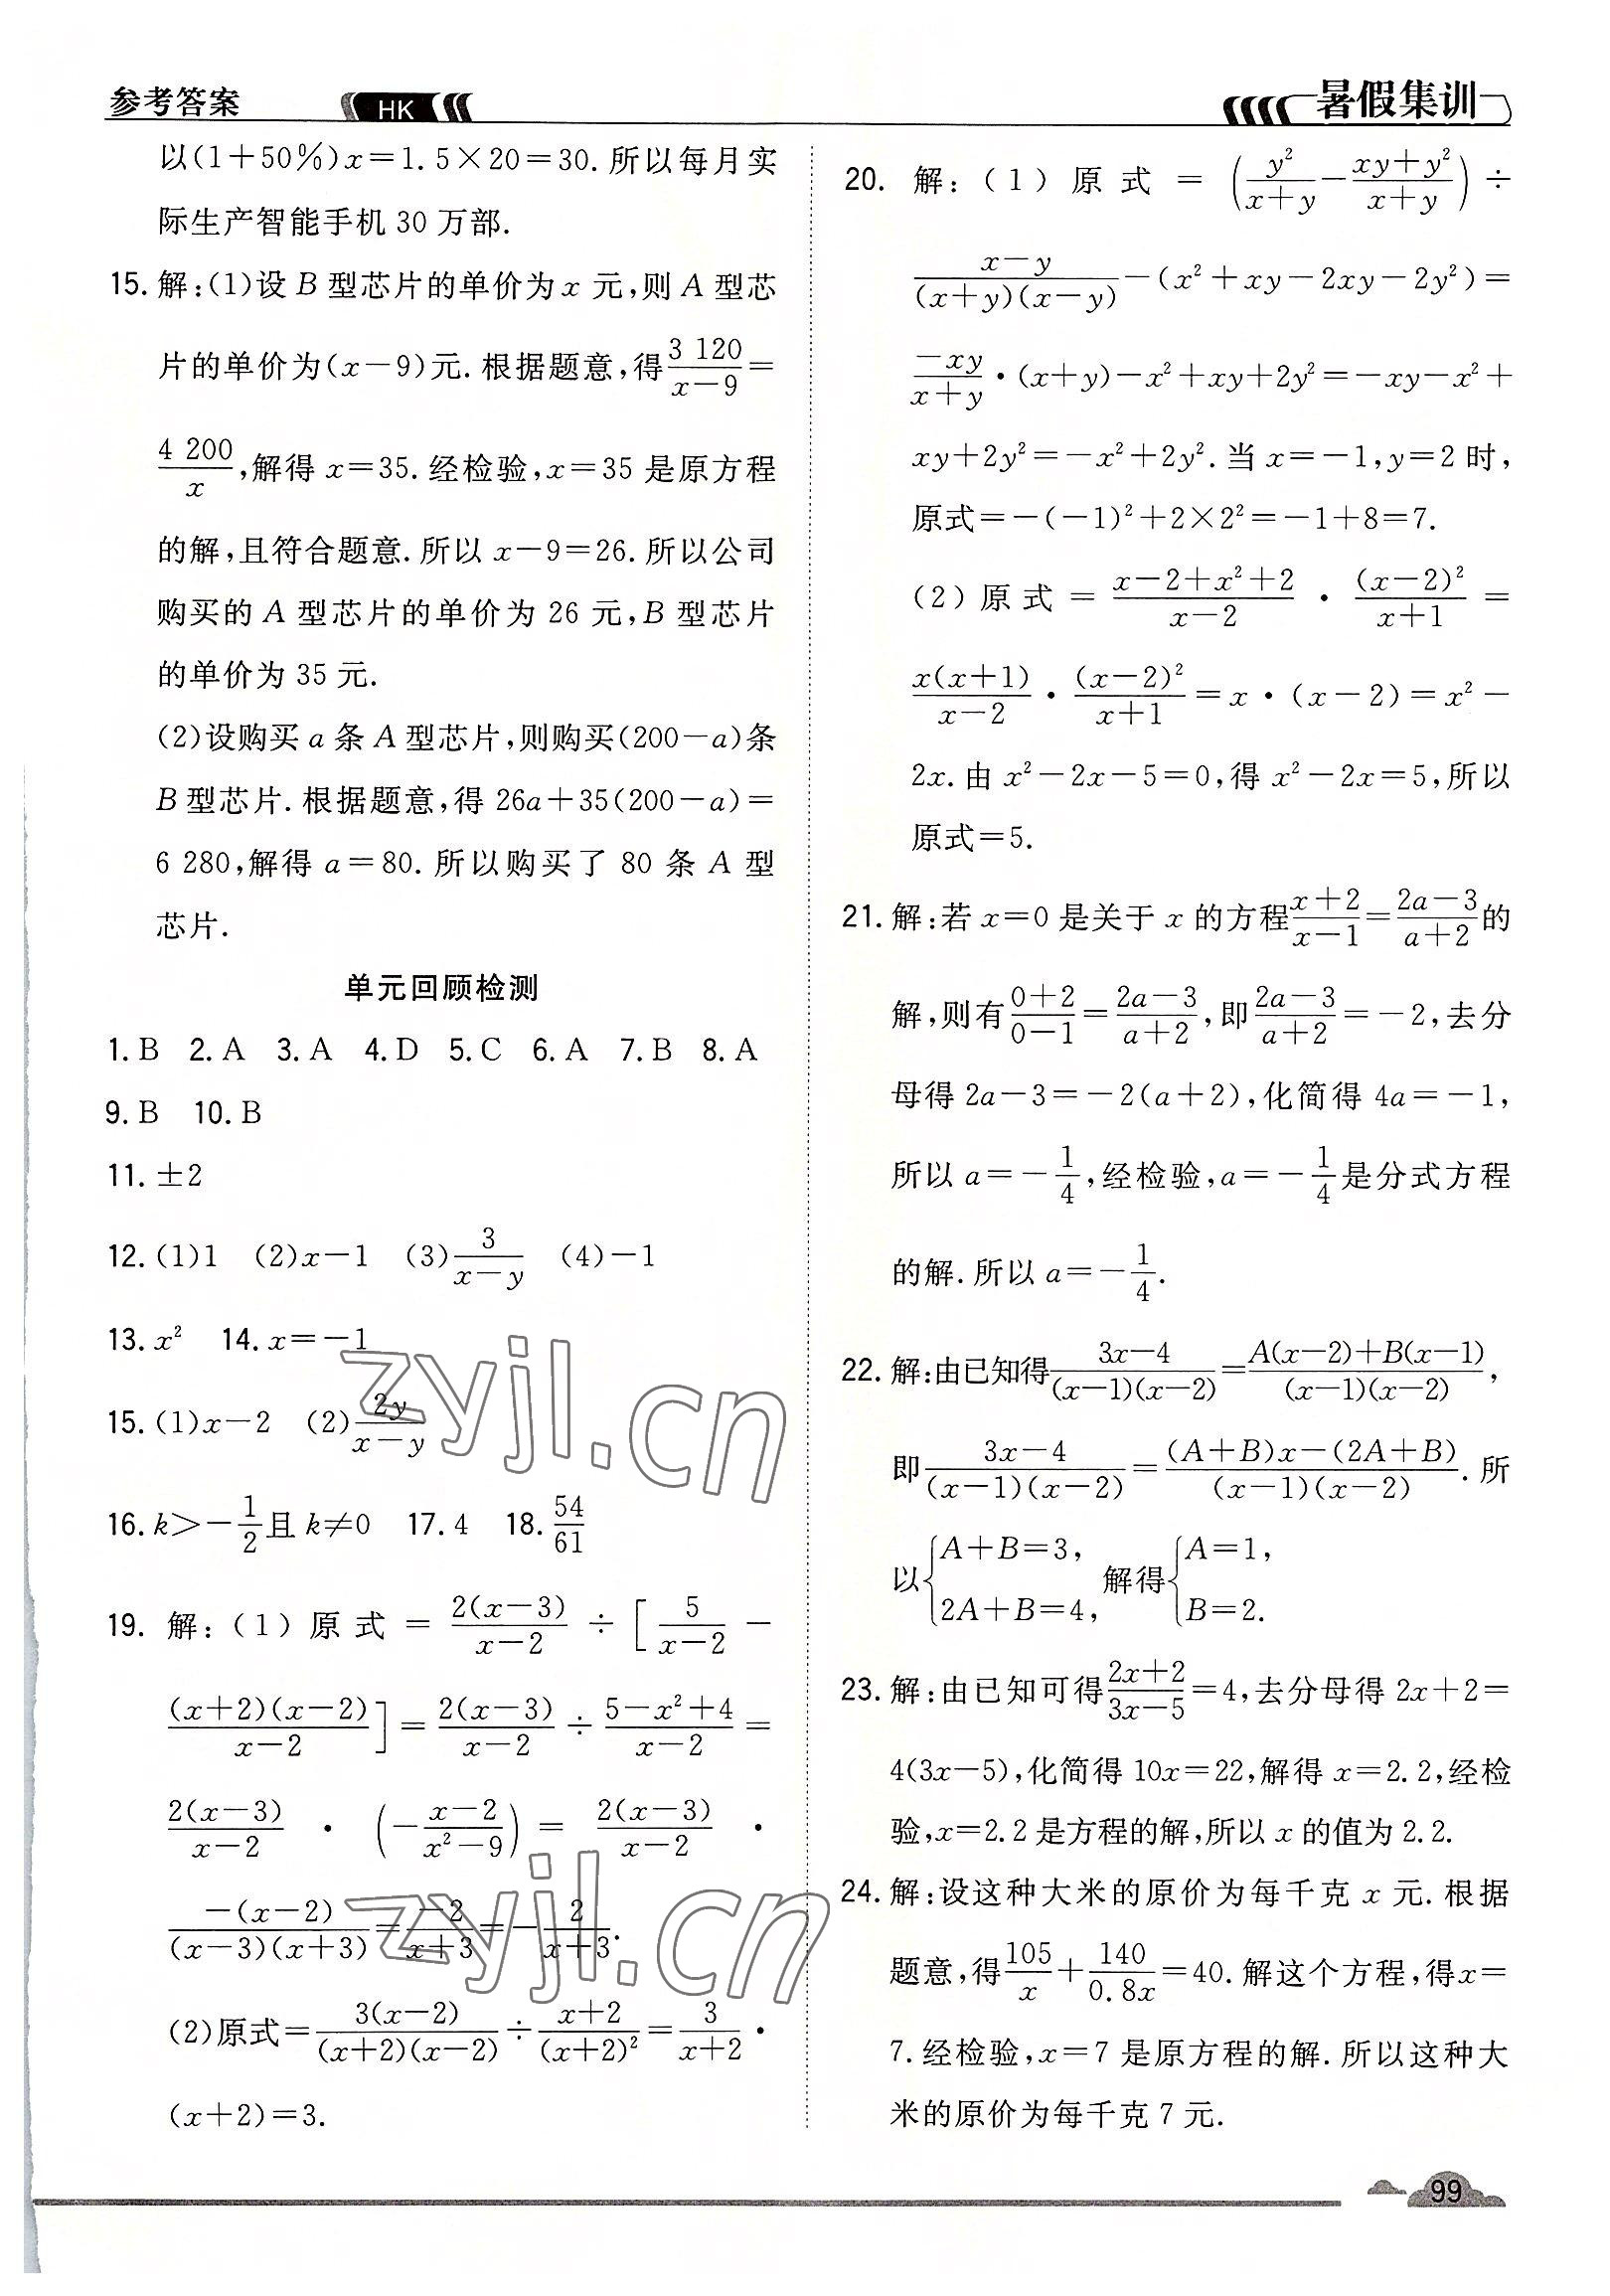 参考答案 HK 暑假集训
以(1+50%)x=1.5×20=30.所以每月实
际生产智能手机 30 万部.
15. 解:(1)设 B 型芯片的单价为 x 元,则 A 型芯
片的单价为(x-9)元.根据题意,得\frac{3 120}{x-9}=
\frac{4 200}{x},解得 x=35.经检验,x=35 是原方程
的解,且符合题意.所以 x-9=26.所以公司
购买的 A 型芯片的单价为 26 元,B 型芯片
的单价为 35 元.
(2)设购买 a 条 A 型芯片,则购买(200-a)条
B 型芯片.根据题意,得 26a+35(200-a)=
6 280,解得 a=80.所以购买了 80 条 A 型
芯片.
单元回顾检测
1. B 2. A 3. A 4. D 5. C 6. A 7. B 8. A
9. B 10. B
11. ±2
12. (1)1 (2)x-1 (3)\frac{3}{x-y} (4)-1
13. x² 14. x=-1
15. (1)x-2 (2)\frac{2y}{x-y}
16. k>-\frac{1}{2}且 k≠0 17. 4 18. \frac{54}{61}
19. 解:(1)原式=\frac{2(x-3)}{x-2}÷[\frac{5}{x-2}-
\frac{(x+2)(x-2)}{x-2}]=\frac{2(x-3)}{x-2}÷\frac{5-x²+4}{x-2}=
\frac{2(x-3)}{x-2}·(-\frac{x-2}{x²-9})=\frac{2(x-3)}{x-2}·
\frac{-(x-2)}{(x-3)(x+3)}=\frac{-2}{x+3}=-\frac{2}{x+3}.
(2)原式=\frac{3(x-2)}{(x+2)(x-2)}÷\frac{x+2}{(x+2)²}=\frac{3}{x+2}·
(x+2)=3.
20. 解:(1)原式=(\frac{y²}{x+y}-\frac{xy+y²}{x+y})÷
\frac{x-y}{(x+y)(x-y)}-(x²+xy-2xy-2y²)=
\frac{-xy}{x+y}·(x+y)-x²+xy+2y²=-xy-x²+
xy+2y²=-x²+2y².当 x=-1,y=2 时,
原式=-(-1)²+2×2²=-1+8=7.
(2)原式=\frac{x-2+x²+2}{x-2}·\frac{(x-2)²}{x+1}=
\frac{x(x+1)}{x-2}·\frac{(x-2)²}{x+1}=x·(x-2)=x²-
2x.由 x²-2x-5=0,得 x²-2x=5,所以
原式=5.
21. 解:若 x=0 是关于 x 的方程\frac{x+2}{x-1}=\frac{2a-3}{a+2}的
解,则有\frac{0+2}{0-1}=\frac{2a-3}{a+2},即\frac{2a-3}{a+2}=-2,去分
母得 2a-3=-2(a+2),化简得 4a=-1,
所以 a=-\frac{1}{4},经检验,a=-\frac{1}{4}是分式方程
的解.所以 a=-\frac{1}{4}.
22. 解:由已知得\frac{3x-4}{(x-1)(x-2)}=\frac{A(x-2)+B(x-1)}{(x-1)(x-2)},
即\frac{3x-4}{(x-1)(x-2)}=\frac{(A+B)x-(2A+B)}{(x-1)(x-2)}.所
以{A+B=3, 2A+B=4, 解得{A=1, B=2.
23. 解:由已知可得\frac{2x+2}{3x-5}=4,去分母得 2x+2=
4(3x-5),化简得 10x=22,解得 x=2.2,经检
验,x=2.2 是方程的解,所以 x 的值为 2.2.
24. 解:设这种大米的原价为每千克 x 元.根据
题意,得\frac{105}{x}+\frac{140}{0.8x}=40.解这个方程,得x=
7.经检验,x=7 是原方程的解.所以这种大
米的原价为每千克 7 元.
zyjl.cn
zyjl.cn
99